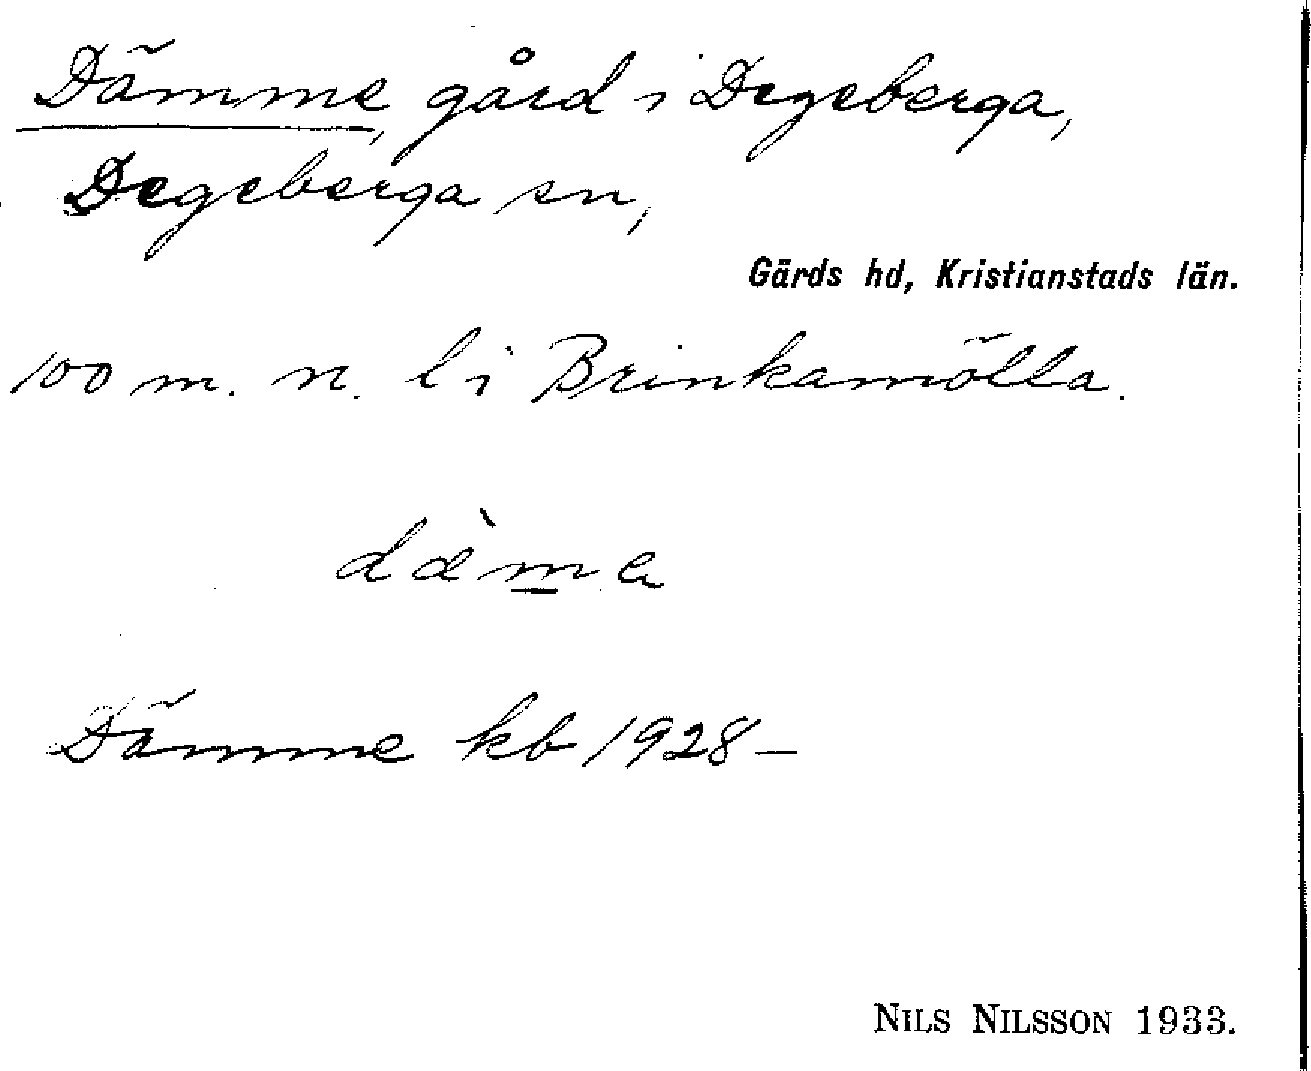 Dämme, gård i Degeberga,
Degeberga sn,
Gärds hd, Kristianstads län.
100 m. n. l i Brinkamölla.
dæ̀m̲a
Dämme kb 1928–
NILS NILSSON 1933.